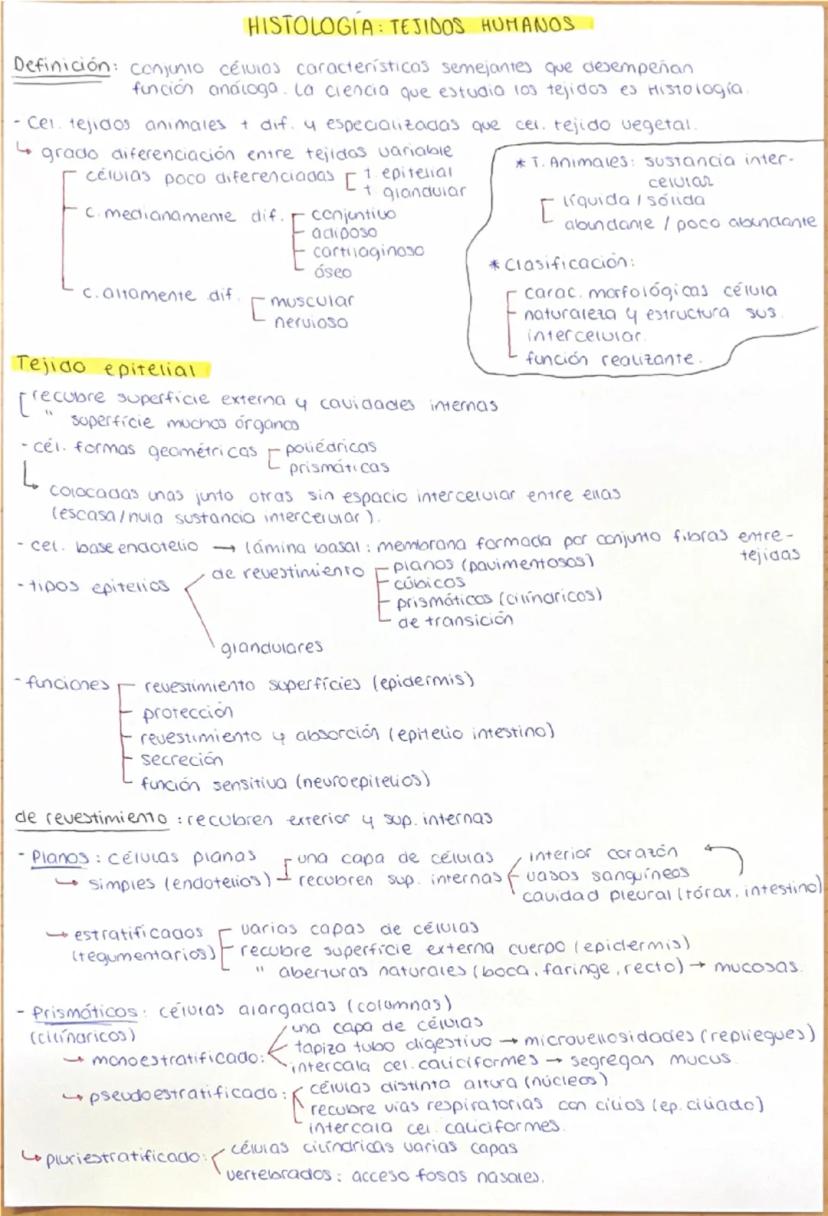 HISTOLOGÍA: TEJIDOS HUMANOS
Definición: conjunto células características semejantes que desempeñan
función análoga. La ciencia que estudia los tejidos es Histología.
- Cel. tejidos animales + dif. y especializadas que cel. tejido vegetal.
↳ grado diferenciación entre tejidos variable
células poco diferenciadas
t epitelial
t glandular
c. medianamente dif.
conjuntivo
adiposo
cartilaginoso
óseo
c. altamente dif.
muscular
nervioso
* T. Animales: sustancia inter-
celular
líquida / sólida
abundante / poco abundante
* Clasificación:
carac. morfológicas célula
naturaleza y estructura sus.
intercelular.
función realizante.
Tejido epitelial
recubre superficie externa y cavidades internas
" superficie muchos órganos
- cél. formas geométricas
poliédricas
prismáticas
↳ colocadas unas junto otras sin espacio intercelular entre ellas
(escasa/nula sustancia intercelular).
- cel. base endotelio → lámina basal: membrana formada por conjunto fibras entre-
tejidas
- tipos epitelios
de revestimiento
planos (pavimentosos)
cúbicos
prismáticos (cilínaricos)
de transición
glandulares
- funciones
revestimiento superfícies (epidermis)
protección
revestimiento y absorción (epitelio intestino)
secreción
función sensitiva (neuroepitelios)
de revestimiento: recubren exterior y sup. internas
- Planos: células planas
↳ simples (endotelios)
una capa de células
recubren sup. internas
interior corazón
vasos sanguíneos
cavidad pleural (tórax, intestino)
→ estratificados
(tegumentarios)
varias capas de células
recubre superficie externa cuerpo (epidermis)
" aberturas naturales (boca, faringe, recto) → mucosas.
- Prismáticos: células alargadas (columnas)
(cilínaricos)
→ monoestratificado:
una capa de células
tapiza tubo digestivo → microvellosidades (repliegues)
intercala cel. caliciformes → segregan mucus.
↳ pseudoestratificado:
células distinta altura (núcleos)
recubre vías respiratorias con cilios (ep. ciliado)
intercala cel. caliciformes.
↳ pluriestratificado:
células cilíndricas varias capas
vertebrados: acceso fosas nasales.